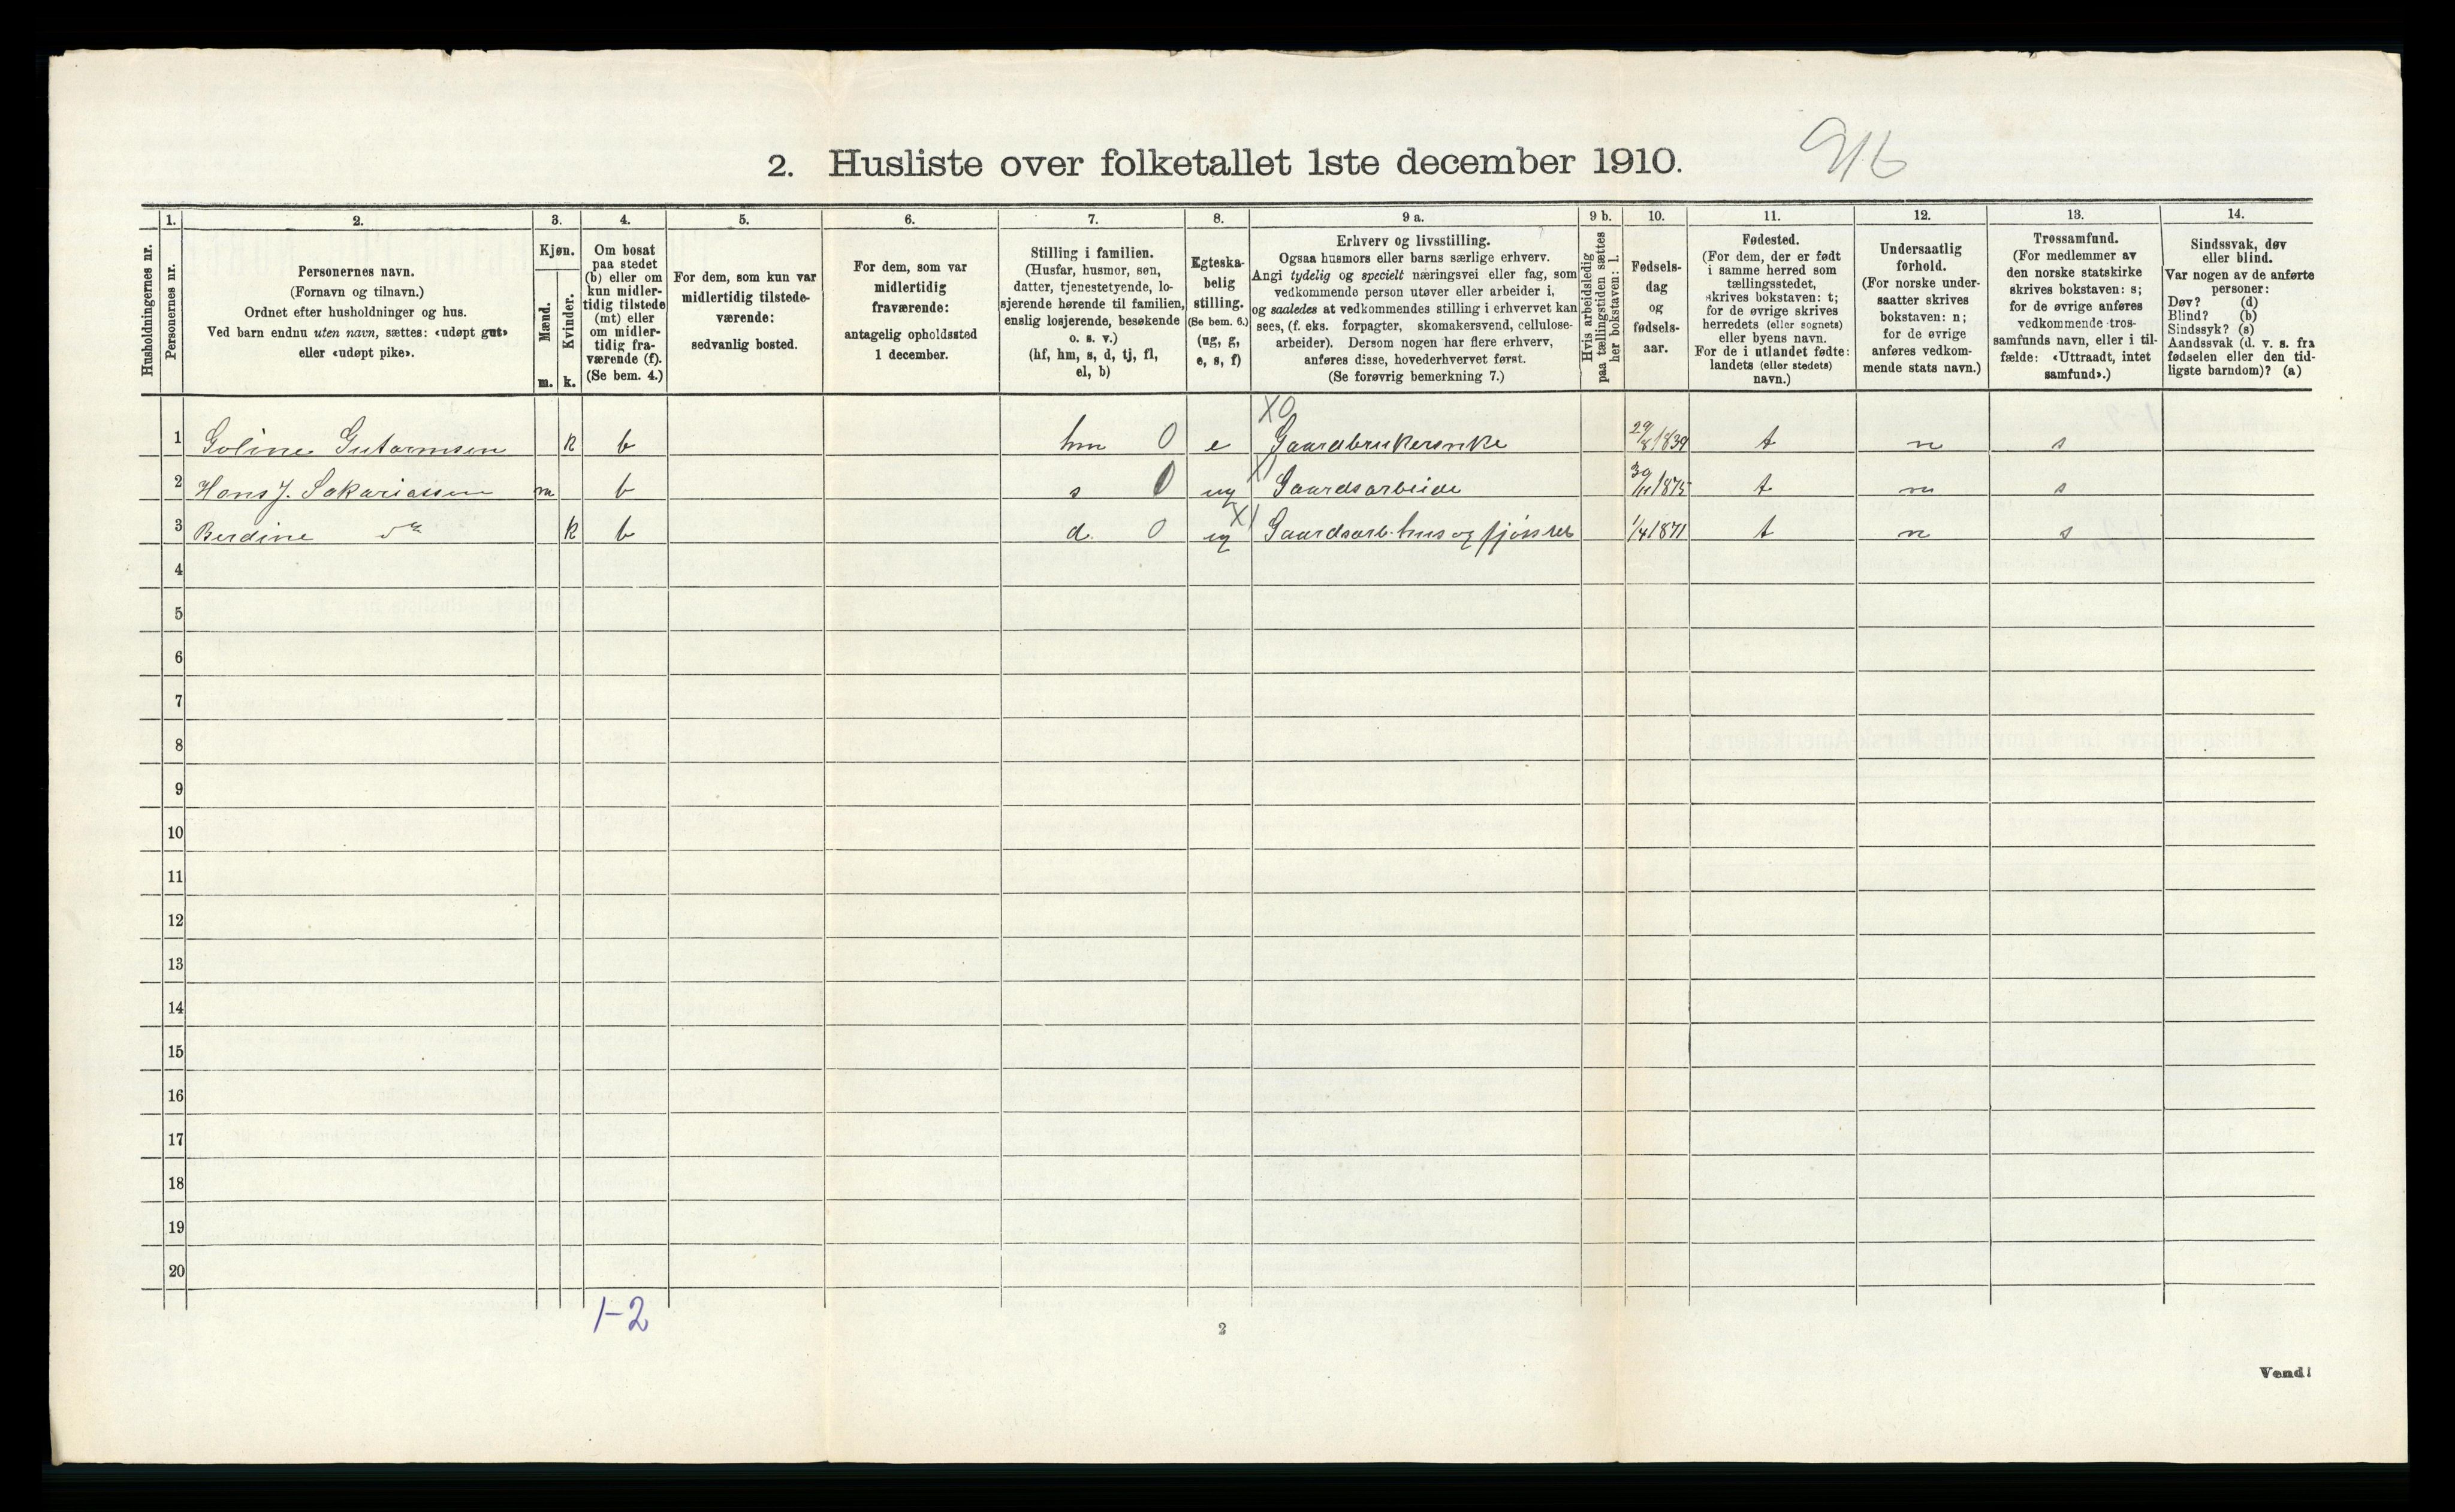 2. Husliste over folketallet 1ste december 1910.
916
Husholdningernes nr.
1.
Personernes nr.
2.
Personernes navn.
(Fornavn og tilnavn.)
Ordnet efter husholdninger og hus.
Ved barn endnu uten navn, sættes: «udøpt gut»
eller «udøpt pike».
3.
Kjøn.
Mænd.
m.
Kvinder.
k.
4.
Om bosat
paa stedet
(b) eller om
kun midler-
tidig tilstede
(mt) eller
om midler-
tidig fra-
værende (f).
(Se bem. 4.)
5.
For dem, som kun var
midlertidig tilstede-
værende:
sedvanlig bosted.
6.
For dem, som var
midlertidig
fraværende:
antagelig opholdssted
1 december.
7.
Stilling i familien.
(Husfar, husmor, søn,
datter, tjenestetyende, lo-
sjerende hørende til familien,
enslig losjerende, besøkende
o. s. v.)
(hf, hm, s, d, tj, fl,
el, b)
8.
Egteska-
belig
stilling.
(Se bem. 6.)
(ug, g,
e, s, f)
9 a.
Erhverv og livsstilling.
Ogsaa husmors eller barns særlige erhverv.
Angi tydelig og specielt næringsvei eller fag, som
vedkommende person utøver eller arbeider i,
og saaledes at vedkommendes stilling i erhvervet kan
sees, (f. eks. forpagter, skomakersvend, cellulose-
arbeider). Dersom nogen har flere erhverv,
anføres disse, hovederhvervet først.
(Se forøvrig bemerkning 7.)
9 b.
Hvis arbeidsledig
paa tællingstiden sættes
her bokstaven: l.
10.
Fødsels-
dag
og
fødsels-
aar.
11.
Fødested.
(For dem, der er født
i samme herred som
tællingsstedet,
skrives bokstaven: t;
for de øvrige skrives
herredets (eller sognets)
eller byens navn.
For de i utlandet fødte:
landets (eller stedets)
navn.)
12.
Undersaatlig
forhold.
(For norske under-
saatter skrives
bokstaven: n;
for de øvrige
anføres vedkom-
mende stats navn.)
13.
Trossamfund.
(For medlemmer av
den norske statskirke
skrives bokstaven: s;
for de øvrige anføres
vedkommende tros-
samfunds navn, eller i til-
fælde: «Uttraadt, intet
samfund».)
14.
Sindssvak, døv
eller blind.
Var nogen av de anførte
personer:
Døv? (d)
Blind? (b)
Sindssyk? (s)
Aandssvak (d. v. s. fra
fødselen eller den tid-
ligste barndom)? (a)
X0
1 Goline Gutormsen k b hm 0 e Gaardbrukerenke 29/8 1839 t n s
2 Hans J. Sakariassen m b s 0 ug X1 Gaardsarbeide 30/11 1875 t n s
3 Berdine do k b d. 0 ug X1 Gaardsarb. hus og fjøsstel 1/4 1871 t n s
4
5
6
7
8
9
10
11
12
13
14
15
16
17
18
19
20
1-2
2
Vend!